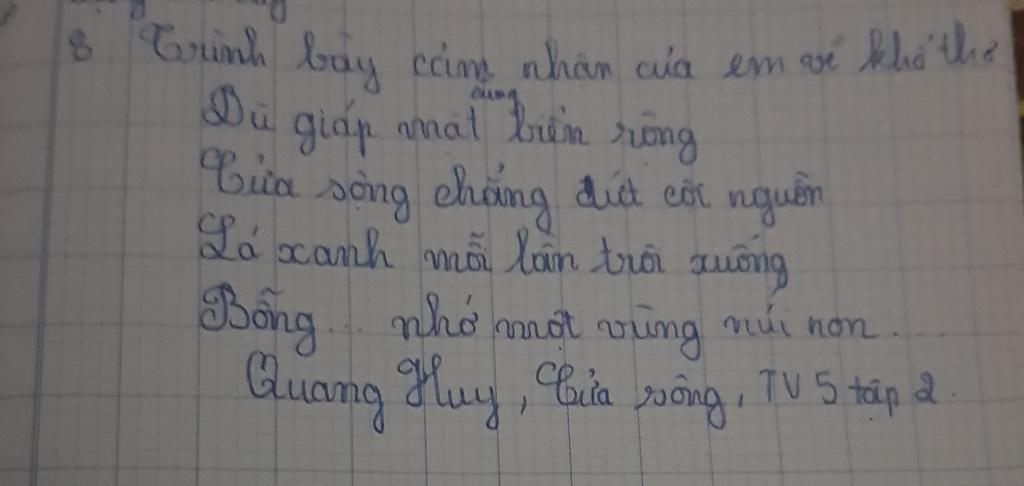 8 Trình bày cảm nhận của em về khổ thơ
Dù giáp mặt cùng biển rộng
Cửa sông chẳng dứt cội nguồn
Lá xanh mỗi lần trôi xuống
Bỗng .. nhớ một vùng núi non ...
Quang Huy, Cửa sông, TV 5 tập 2.